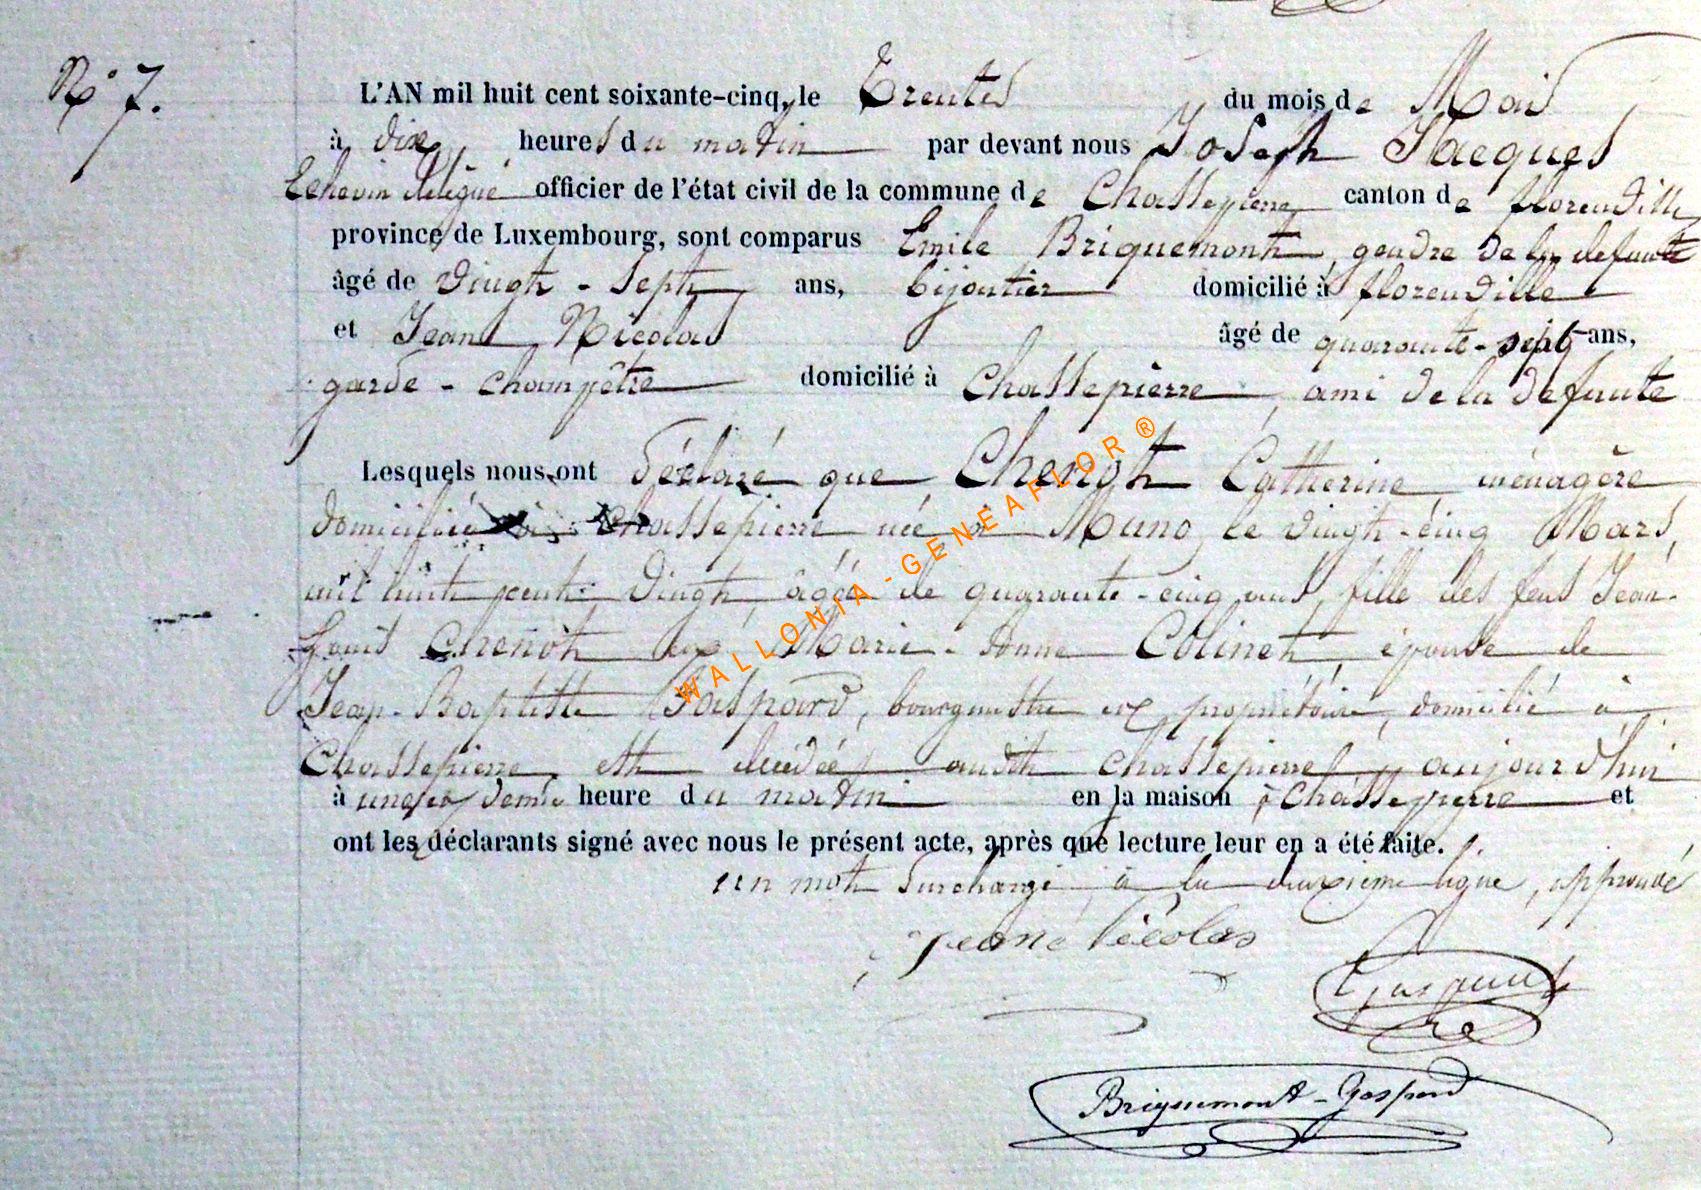 N° 7.
L'AN mil huit cent soixante-cinq, le Trente du mois de Mai
à dix heures du matin par devant nous Joseph Jacques
Echevin délégué officier de l'état civil de la commune de Chassepierre canton de florenville
province de Luxembourg, sont comparus Emile Briquemont, gendre de la defunte
âgé de Vingt-Sept ans, bijoutier domicilié à florenville
et Jean Nicolas âgé de quarante-sept ans,
garde-champêtre domicilié à Chassepierre, ami de la defunte
Lesquels nous ont déclaré que Chenot Catherine, ménagère
domiciliée à Chassepierre née à Muno, le vingt-cinq Mars
mil huit cent Vingt, âgée de quarante-cinq ans, fille des feus Jean-
Louis Chenot et Marie-Jonne Colinet, épouse de
Jean-Baptiste Gaspard, bourgmestre et propriétaire, domicilié à
Chassepierre, est décédée audit chassepierre aujourd'hui
à une et demie heure du matin en la maison à Chassepierre et
ont les déclarants signé avec nous le présent acte, après que lecture leur en a été faite.
un mot surchargé à la deuxième ligne, approuvé
Jean Nicolas
Briquemont-Gaspard
WALLONIA - GENEAFLOR ®